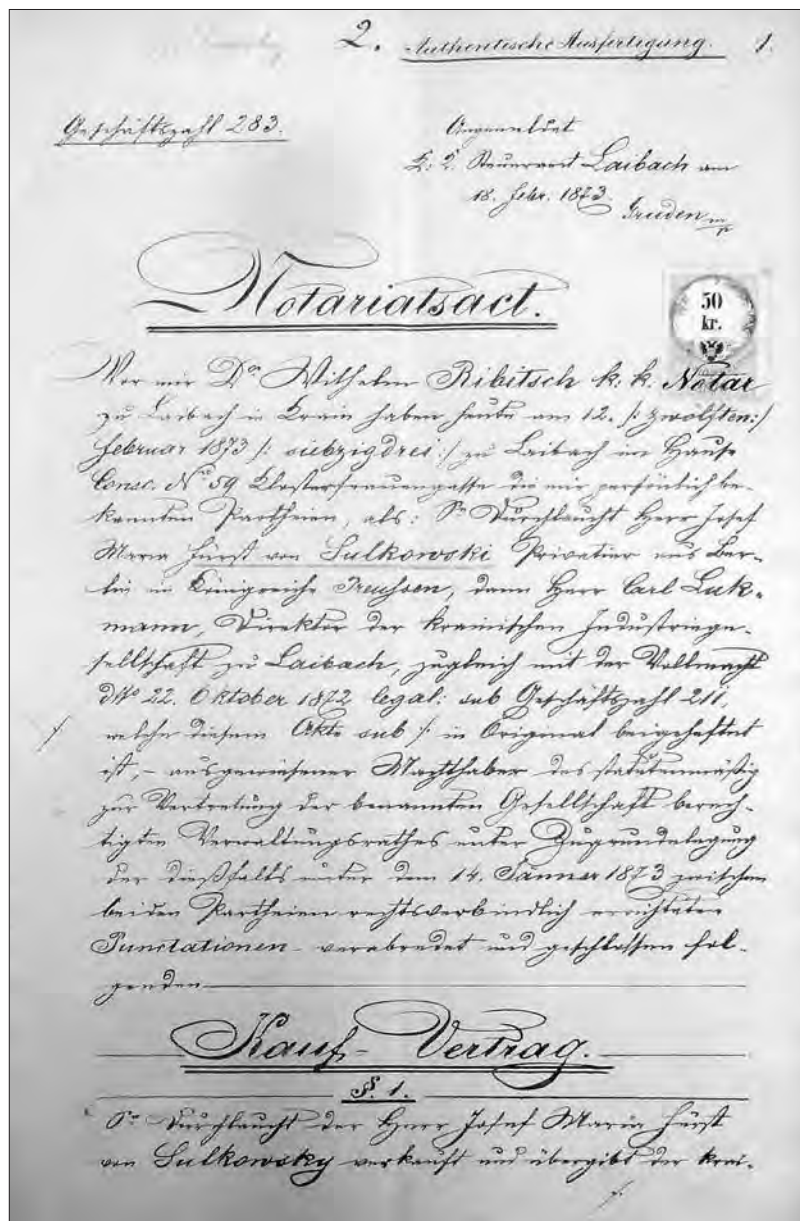 2. Authentische Ausfertigung. 1.
Geschäftszahl 283.
Angemeldet
k: k. Steueramt Laibach am
18. Febr. 1873.
Gruden m/p
Notariatsact.
50
kr.
Vor mir Dr. Wilhelm Ribitsch k: k. Notar
zu Laibach in Krain haben heute am 12. /: zwölften :/
Februar 1873 /: siebzigdrei :/ zu Laibach im Hause
Consc. No 59 Klosterfrauengasse die mir persönlich be-
kannten Partheien, als: Se Durchlaucht Herr Josef
Maria Fürst von Sulkowski Privatier aus Ber-
lin im Königreiche Preussen, dann Herr Carl Luk-
mann, Direktor der krainischen Industriege-
sellschaft zu Laibach, zugleich mit der Vollmacht
ddto 22. Oktober 1872 legal: sub Geschäftszahl 211,
welche diesem Akte sub ·/. in Original beigeheftet
ist, – ausgewiesener Machthaber des statutenmäßig
zur Vertretung der benannten Gesellschaft berech-
tigten Verwaltungsrathes unter Zugrundelegung
der dießfalls unter dem 14. Jänner 1873 zwischen
beiden Partheien rechtsverbindlich errichteten
Punctationen verabredet und geschlossen fol-
genden
Kauf-Vertrag.
§. 1.
Se Durchlaucht der Herr Josef Maria Fürst
von Sulkowsky verkauft und übergibt der krai-